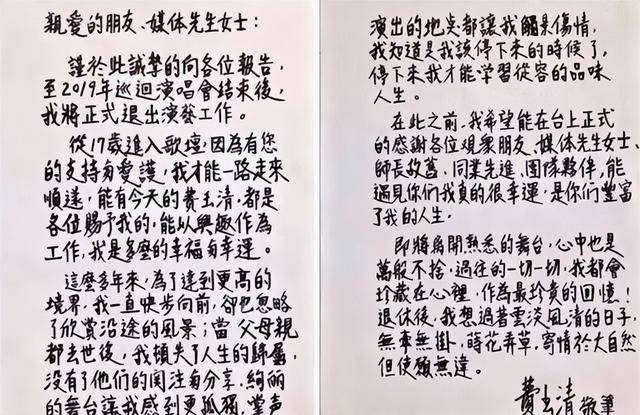 親愛的朋友、媒体先生女士：
謹於此誠摯的向各位報告，
至2019年巡迴演唱會結束後，
我將正式退出演藝工作。
從17歲進入歌壇，因為有您
的支持与愛護，我才能一路走來
順遂，能有今天的費玉清，都是
各位賜予我的，能以興趣作為
工作，我是多麼的幸福与幸運。
這麼多年來，為了達到更高的
境界，我一直快步向前，卻也忽略
了欣賞沿途的風景；當父母親
都去世後，我頓失了人生的歸屬，
沒有了他們的関注与分享，絢麗
的舞台讓我感到更孤獨，掌声
演出的地点都讓我觸景傷情，
我知道是我該停下來的時候了，
停下來我才能学習從容的品味
人生。
在此之前，我希望能在台上正式
的感謝各位观衆朋友、媒体先生女士、
師長故舊、同業先進、團隊夥伴，能
遇見你們我真的很幸運，是你們豐富
了我的人生。
即將离開熟悉的舞台，心中也是
萬般不捨，過往的一切一切，我都會
珍藏在心裡，作為最珍貴的回憶！
退休後，我想過著雲淡風清的日子，
無牽無掛，蒔花弄草，寄情於大自然
但使願無違。
費玉清 敬筆